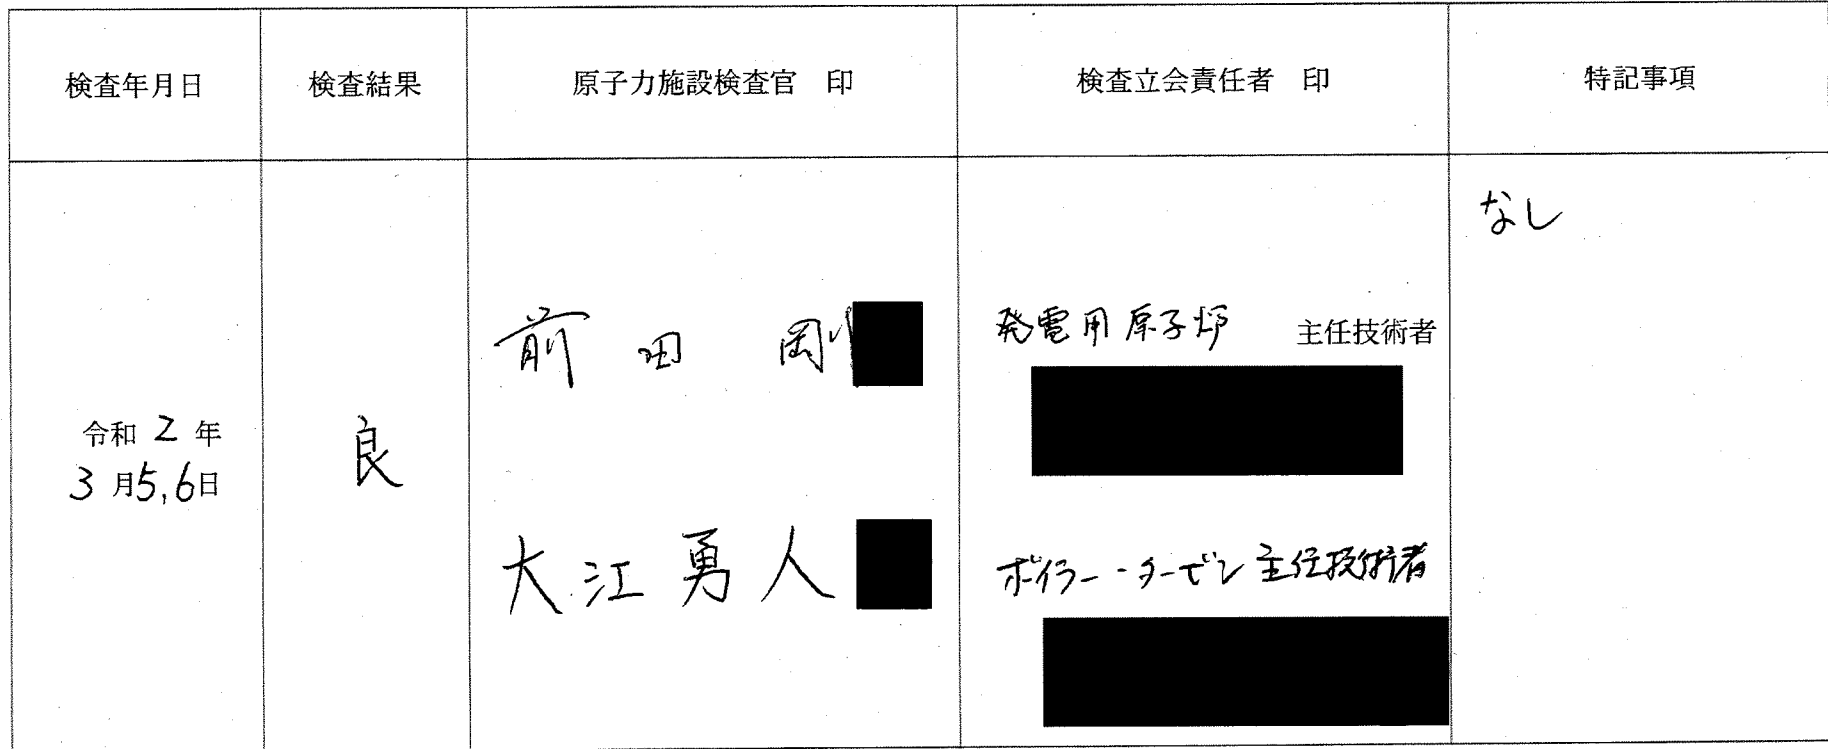 検査年月日
検査結果
原子力施設検査官 印
検査立会責任者 印
特記事項
令和 2 年
3 月5,6日
良
前田 剛
大江勇人
発電用原子炉 主任技術者
ボイラー・タービン主任技術者
なし